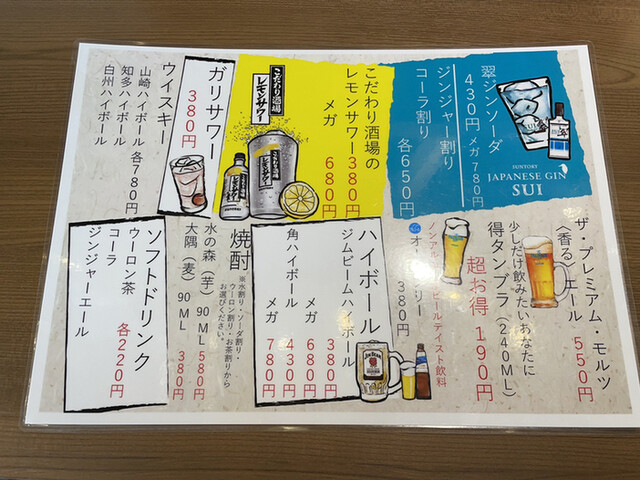 翠ジンソーダ
430円 メガ 780円
ジンジャー割り
コーラ割り
各650円
SUNTORY
JAPANESE GIN
SUI
こだわり酒場の
レモンサワー 380円
メガ 680円
こだわり酒場
レモンサワー
ガリサワー
380円
ウイスキー
山崎ハイボール
知多ハイボール 各780円
白州ハイボール
ザ・プレミアム・モルツ
(香る)エール 550円
少しだけ飲みたいあなたに
得タンブラ(240ML)
超お得 190円
ノンアル ビールテイスト飲料
オー リー
380円
ハイボール
ジムビームハイボール
380円
メガ 680円
角ハイボール 430円
メガ 780円
JIM BEAM
焼酎
※水割り・ソーダ割り・
ウーロン割り・お茶割りから
お選びください。
水の森(芋) 90ML 580円
大隅(麦) 90ML 380円
ソフトドリンク
ウーロン茶
コーラ
ジンジャーエール
各220円